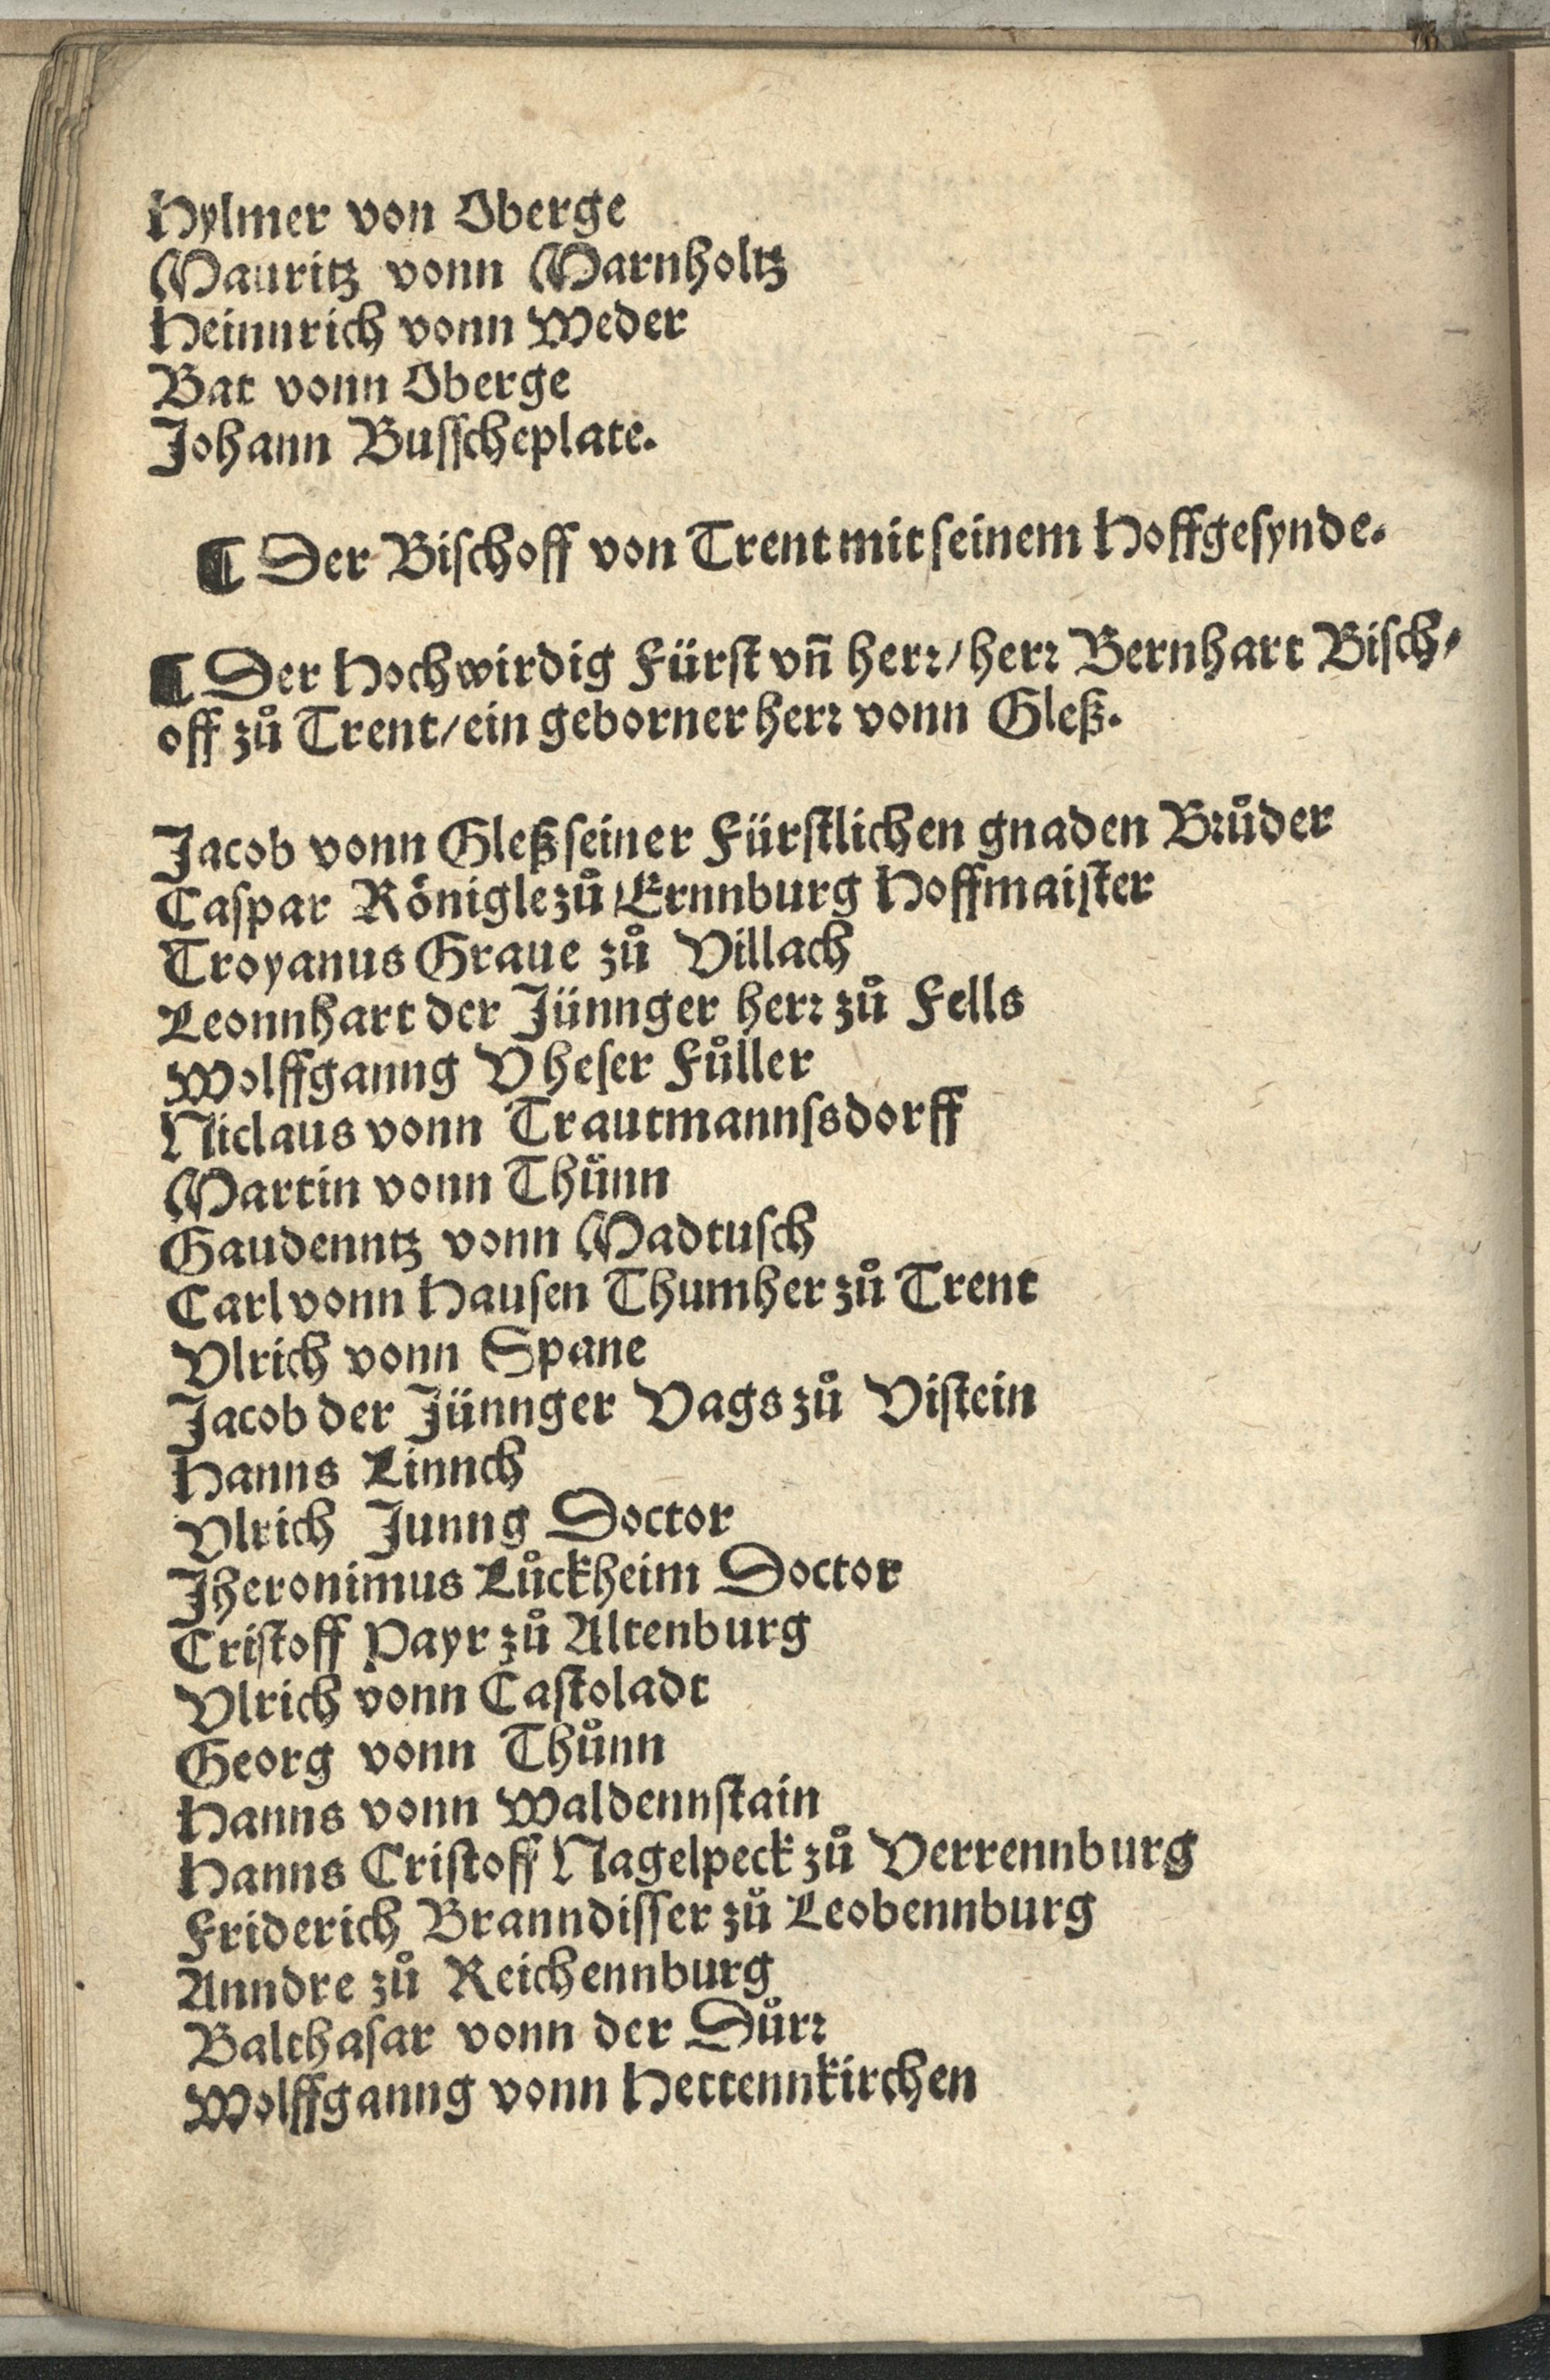 Hylmer von Oberge
Mauritz vonn Marnholtz
Heinnrich vonn Weder
Bat vonn Oberge
Johann Buſſcheplate.
¶ Der Biſchoff von Trent mit ſeinem Hoffgeſynde.
¶ Der Hochwirdig Fürſt vñ herꝛ/herꝛ Bernhart Biſch⸗
off zů Trent/ein geborner herꝛ vonn Gleß.
Jacob vonn Gleß ſeiner Fürſtlichen gnaden Bꝛůder
Caſpar Rönigle zů Ernnburg Hoffmaiſter
Troyanus Graue zů Villach
Leonnhart der Jünnger herꝛ zů Fells
Wolffganng Vheſer Fůller
Niclaus vonn Trautmannſsdorff
Martin vonn Thünn
Gaudenntz vonn Madtuſch
Carl vonn Hauſen Thumher zů Trent
Vlrich vonn Spane
Jacob der Jünnger Vags zů Viſtein
Hanns Linnch
Vlrich Junng Doctor
Jheronimus Lůckheim Doctor
Criſtoff Payr zů Altenburg
Vlrich vonn Caſtoladt
Georg vonn Thůnn
Hanns vonn Waldennſtain
Hanns Criſtoff Nagelpeck zů Verrennburg
Friderich Branndiſſer zů Leobennburg
Anndre zů Reichennburg
Balthaſar vonn der Důrꝛ
Wolffganng vonn Hettennkirchen